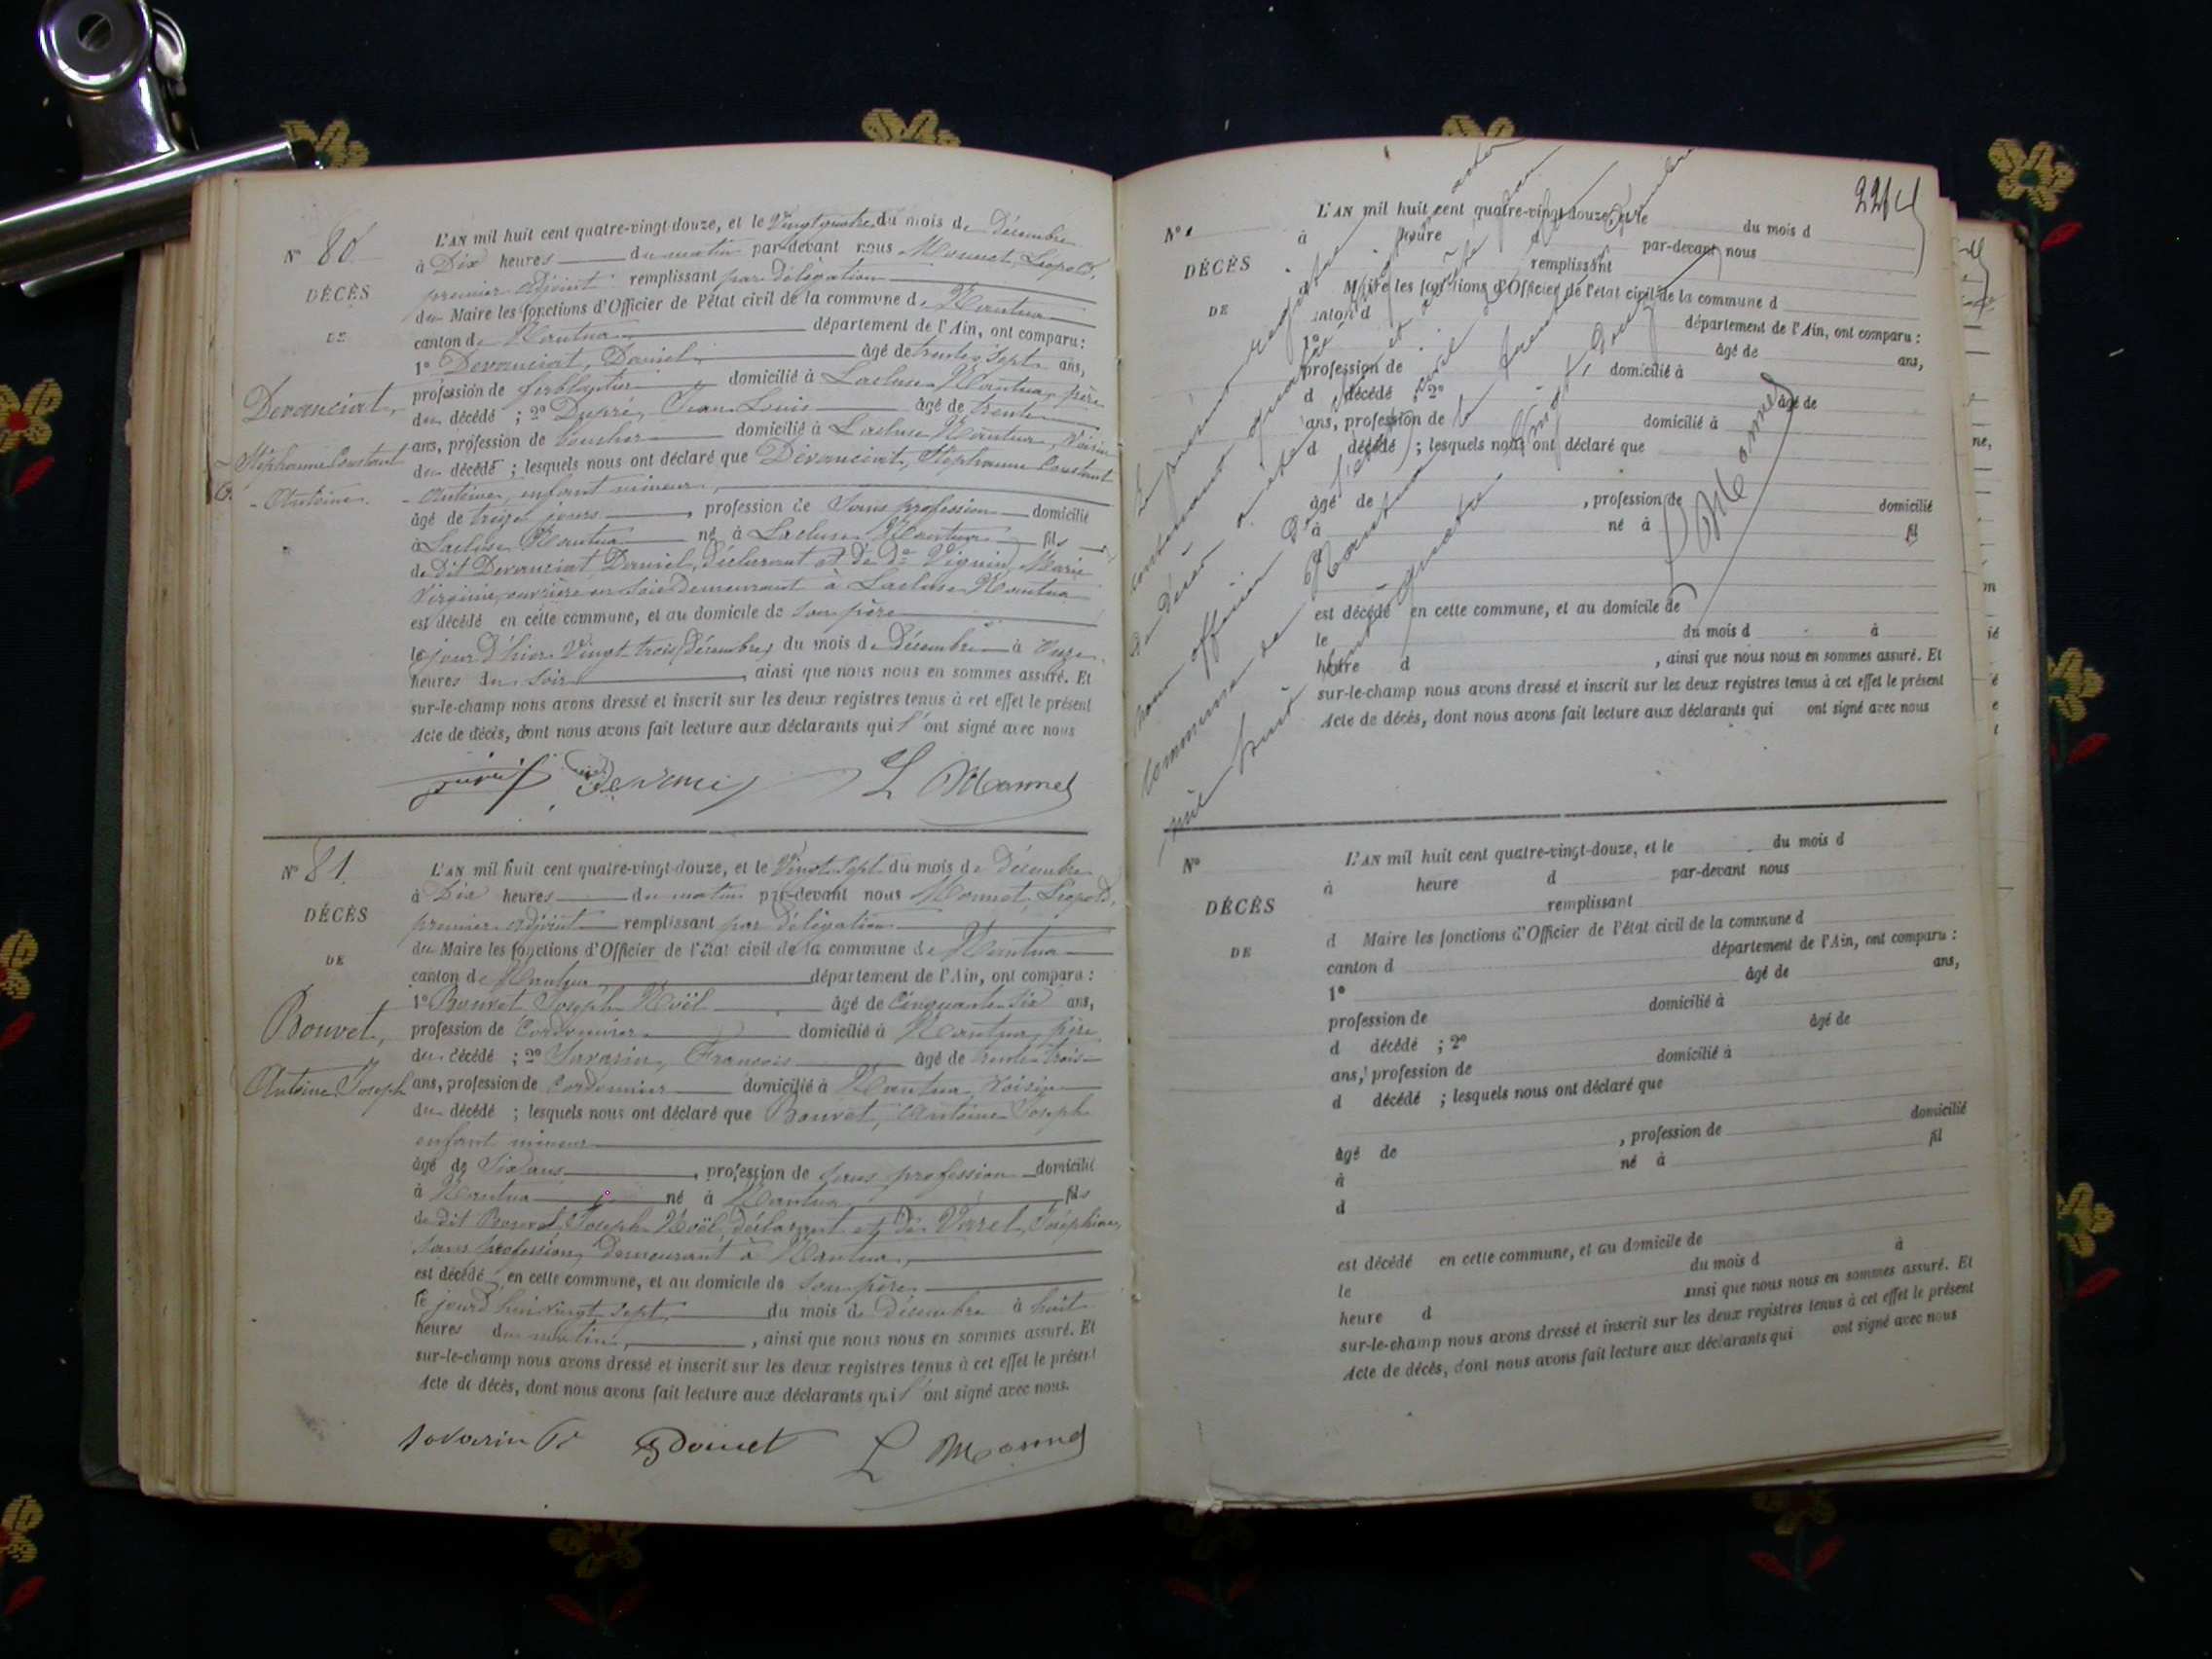 N° 80
DÉCÈS
DE
Devanciat,
Stéphanne Constant
- Antoine.
L'AN mil huit cent quatre-vingt-douze, et le Vingt quatre du mois de Décembre
à Dix heures du matin par-devant nous Monnet, Léopold,
premier adjoint remplissant par délégation
du Maire les fonctions d'Officier de l'état civil de la commune de Nantua
canton de Nantua département de l'Ain, ont comparu :
1° Devanciat, Daniel, âgé de trente sept ans,
profession de ferblantier domicilié à Lacluse Nantua, père
du décédé ; 2° Dupré, Jean Louis âgé de trente
ans, profession de boucher domicilié à Lacluse Nantua, Voisin
du décédé ; lesquels nous ont déclaré que Devanciat, Stéphanne Constant
- Antoine, enfant mineur,
âgé de treize jours, profession de Sans profession domicilié
à Lacluse Nantua né à Lacluse Nantua fils
de dit Devanciat Daniel, déclarant et de Marie
Virginie, ouvrière en soie demeurant à Lacluse Nantua
est décédé en cette commune, et au domicile de son père
le jour d'hier Vingt trois Décembre, du mois de Décembre à Onze
heures du soir, ainsi que nous nous en sommes assuré. Et
sur-le-champ nous avons dressé et inscrit sur les deux registres tenus à cet effet le présent
Acte de décès, dont nous avons fait lecture aux déclarants qui l'ont signé avec nous
L Monnet
N° 81
DÉCÈS
DE
Bouvet,
Antoine Joseph
L'AN mil huit cent quatre-vingt-douze, et le Vingt Sept du mois de Décembre
à Dix heures du matin par-devant nous Monnet, Léopold,
premier adjoint remplissant par délégation
du Maire les fonctions d'Officier de l'état civil de la commune de Nantua
canton de Nantua, département de l'Ain, ont comparu :
1° Bouvet Joseph Noël âgé de Cinquante Six ans,
profession de Cordonnier domicilié à Nantua, père
du décédé ; 2° Savarin, François âgé de trente trois
ans, profession de Cordonnier domicilié à Nantua, Voisin
du décédé ; lesquels nous ont déclaré que Bouvet, Antoine Joseph
enfant mineur
âgé de Six ans, profession de sans profession domicilié
à Nantua né à Nantua fils
de dit Bouvet, Joseph Noël, déclarant et de Joséphine,
sans profession, demeurant à Nantua,
est décédé en cette commune, et au domicile de son père
le jourd'hui vingt sept du mois de décembre à huit
heures du matin, ainsi que nous nous en sommes assuré. Et
sur-le-champ nous avons dressé et inscrit sur les deux registres tenus à cet effet le présent
Acte de décès, dont nous avons fait lecture aux déclarants qui l'ont signé avec nous.
Savarin Bouvet L Monnet
N°
DÉCÈS
DE
L'AN mil huit cent quatre-vingt-douze, et le du mois d
à heure d par-devant nous
remplissant
d Maire les fonctions d'Officier de l'état civil de la commune d
canton d département de l'Ain, ont comparu :
1° âgé de ans,
profession de domicilié à
d décédé ; 2° âgé de
ans, profession de domicilié à
d décédé ; lesquels nous ont déclaré que
âgé de , profession de domicilié
à né à fil
d
est décédé en cette commune, et au domicile de
le du mois d à
heure d , ainsi que nous nous en sommes assuré. Et
sur-le-champ nous avons dressé et inscrit sur les deux registres tenus à cet effet le présent
Acte de décès, dont nous avons fait lecture aux déclarants qui ont signé avec nous
Le présent registre
contenant quatre vingt un actes
de Décès a été clos et arrêté par
nous officier de l'état civil de la
commune de Nantua le trente un Décembre
mil huit cent quatre vingt douze
L Monnet
N°
DÉCÈS
DE
L'AN mil huit cent quatre-vingt-douze, et le du mois d
à heure d par-devant nous
remplissant
d Maire les fonctions d'Officier de l'état civil de la commune d
canton d département de l'Ain, ont comparu :
1° âgé de ans,
profession de domicilié à
d décédé ; 2° âgé de
ans, profession de domicilié à
d décédé ; lesquels nous ont déclaré que
âgé de , profession de domicilié
à né à fil
d
est décédé en cette commune, et au domicile de
le du mois d à
heure d ainsi que nous nous en sommes assuré. Et
sur-le-champ nous avons dressé et inscrit sur les deux registres tenus à cet effet le présent
Acte de décès, dont nous avons fait lecture aux déclarants qui ont signé avec nous